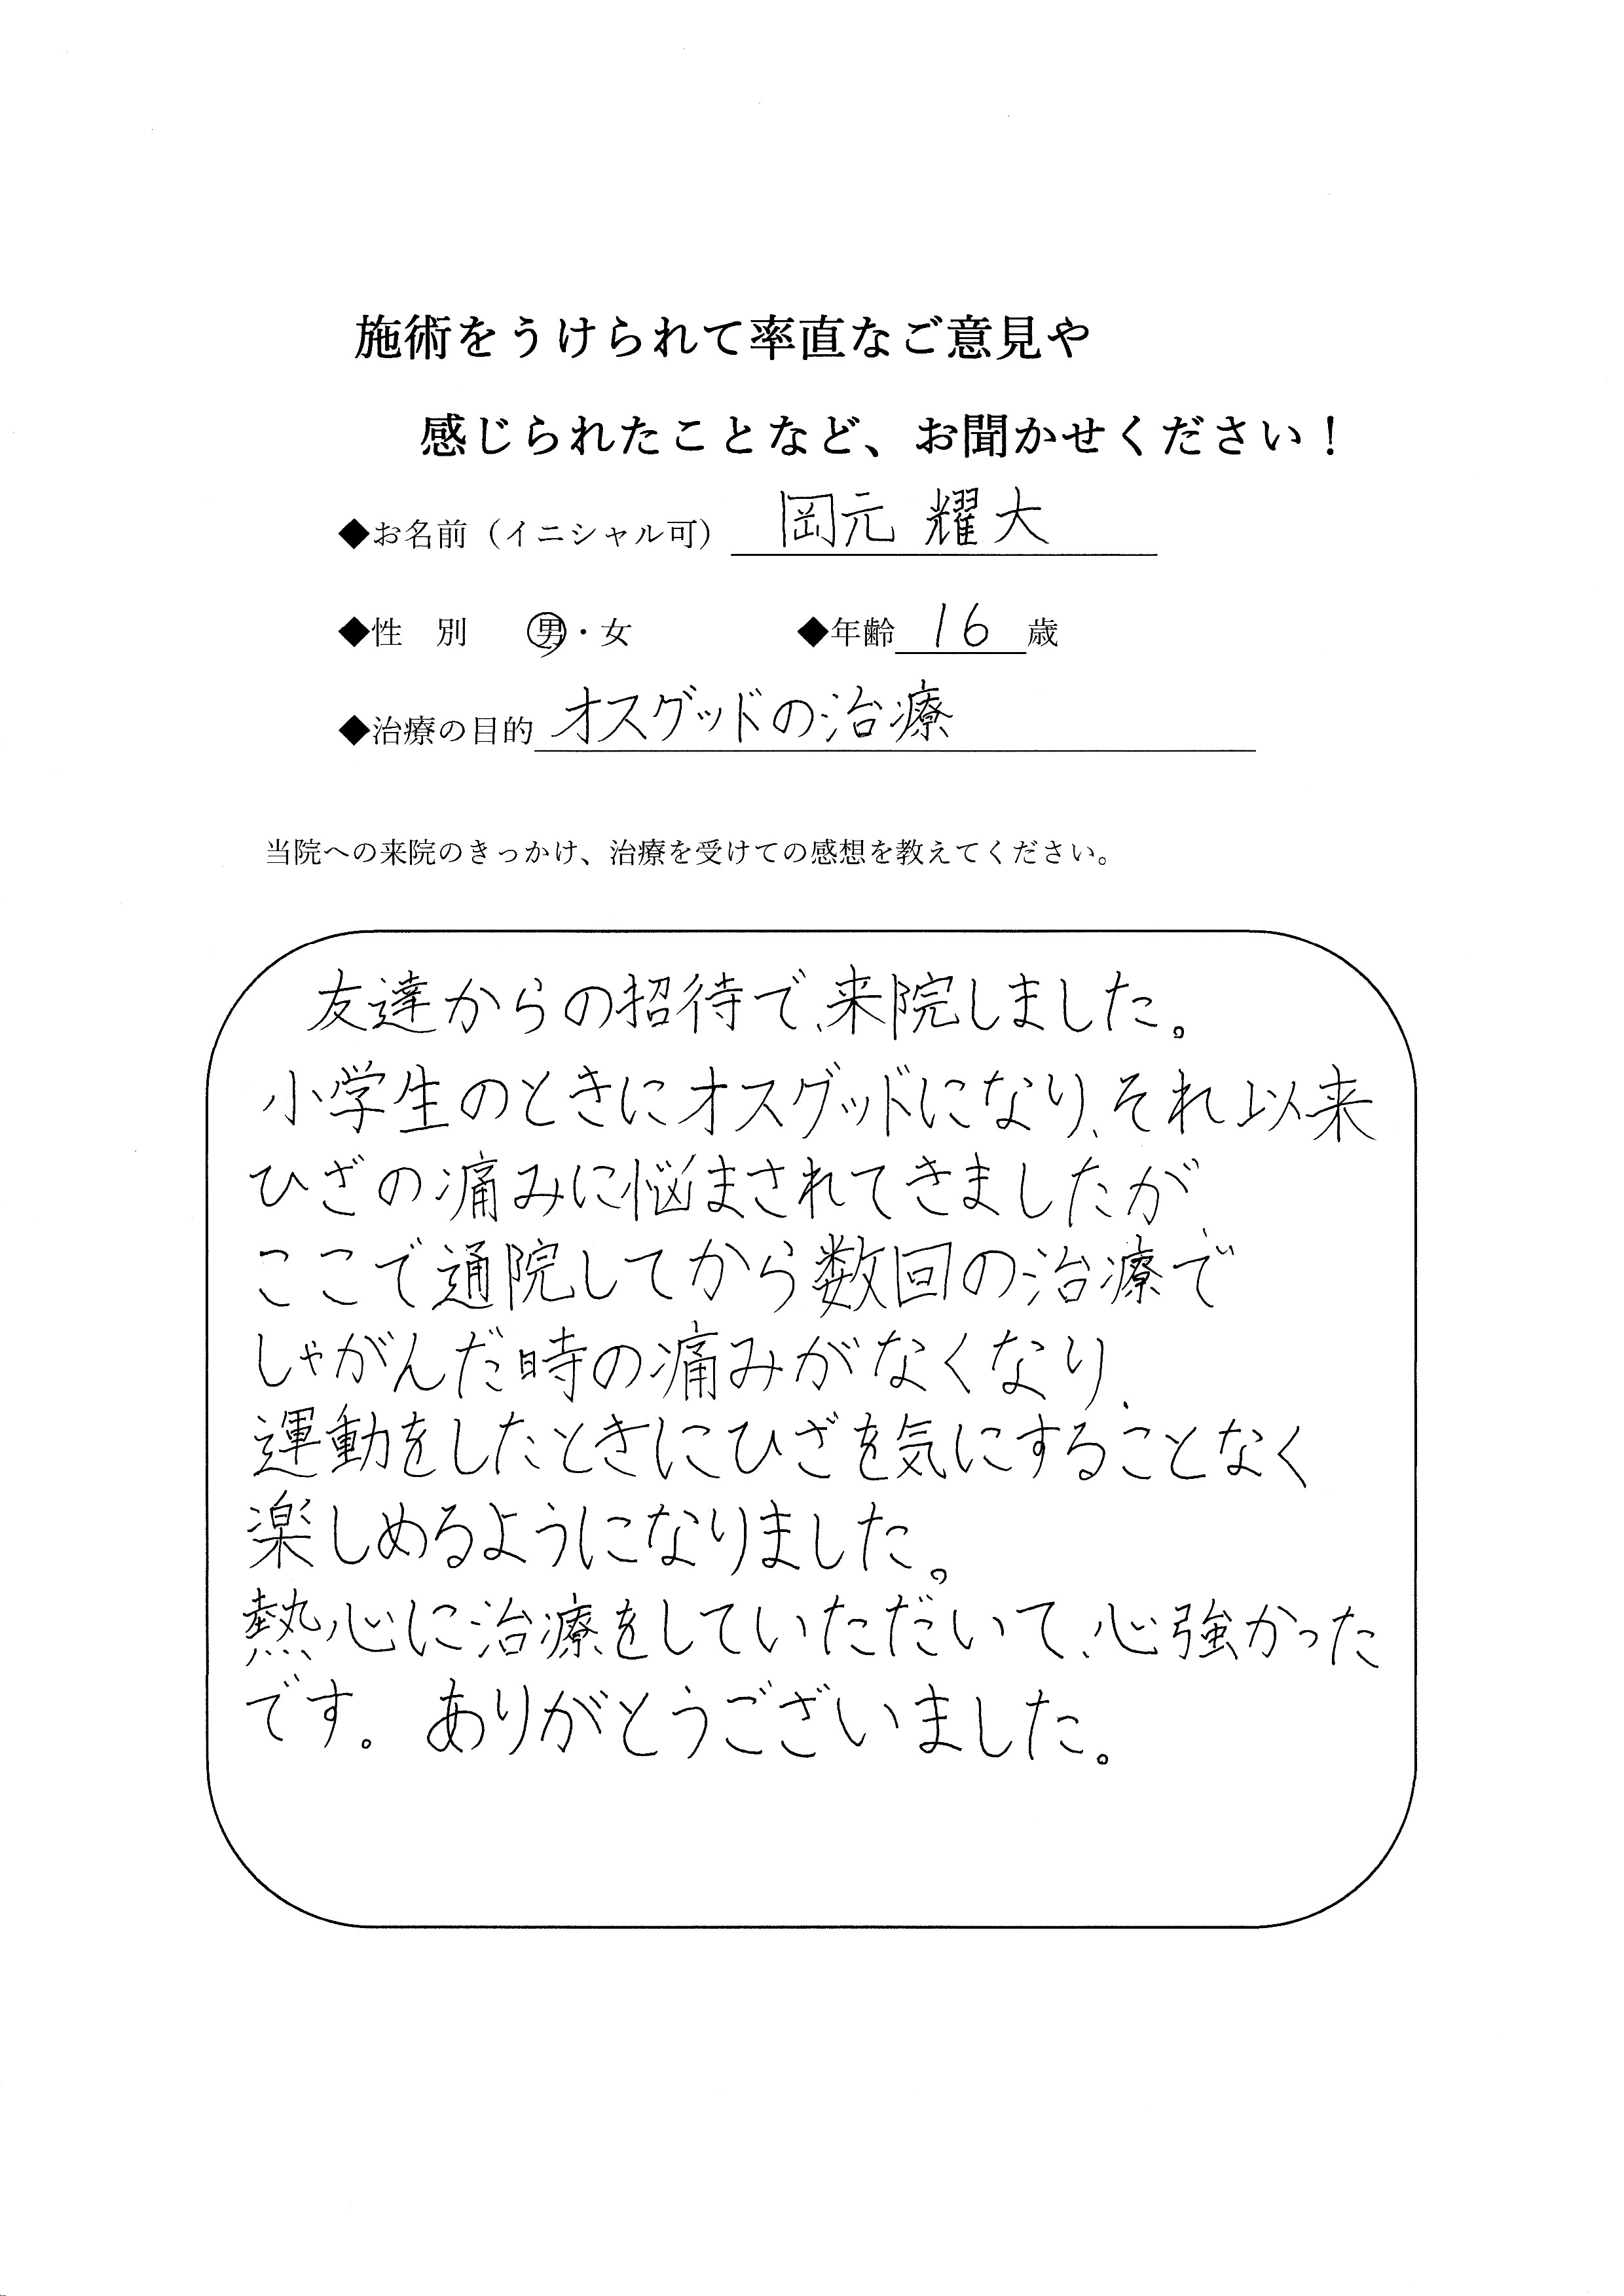 施術をうけられて率直なご意見や
感じられたことなど、お聞かせください！
◆お名前（イニシャル可） 岡元 耀大
◆性 別 男・女 ◆年齢 16 歳
◆治療の目的 オスグッドの治療
当院への来院のきっかけ、治療を受けての感想を教えてください。
友達からの招待で、来院しました。
小学生のときにオスグッドになり、それ以来
ひざの痛みに悩まされてきましたが、
ここで通院してから数回の治療で
しゃがんだ時の痛みがなくなり、
運動をしたときにひざを気にすることなく
楽しめるようになりました。
熱心に治療をしていただいて、心強かった
です。ありがとうございました。